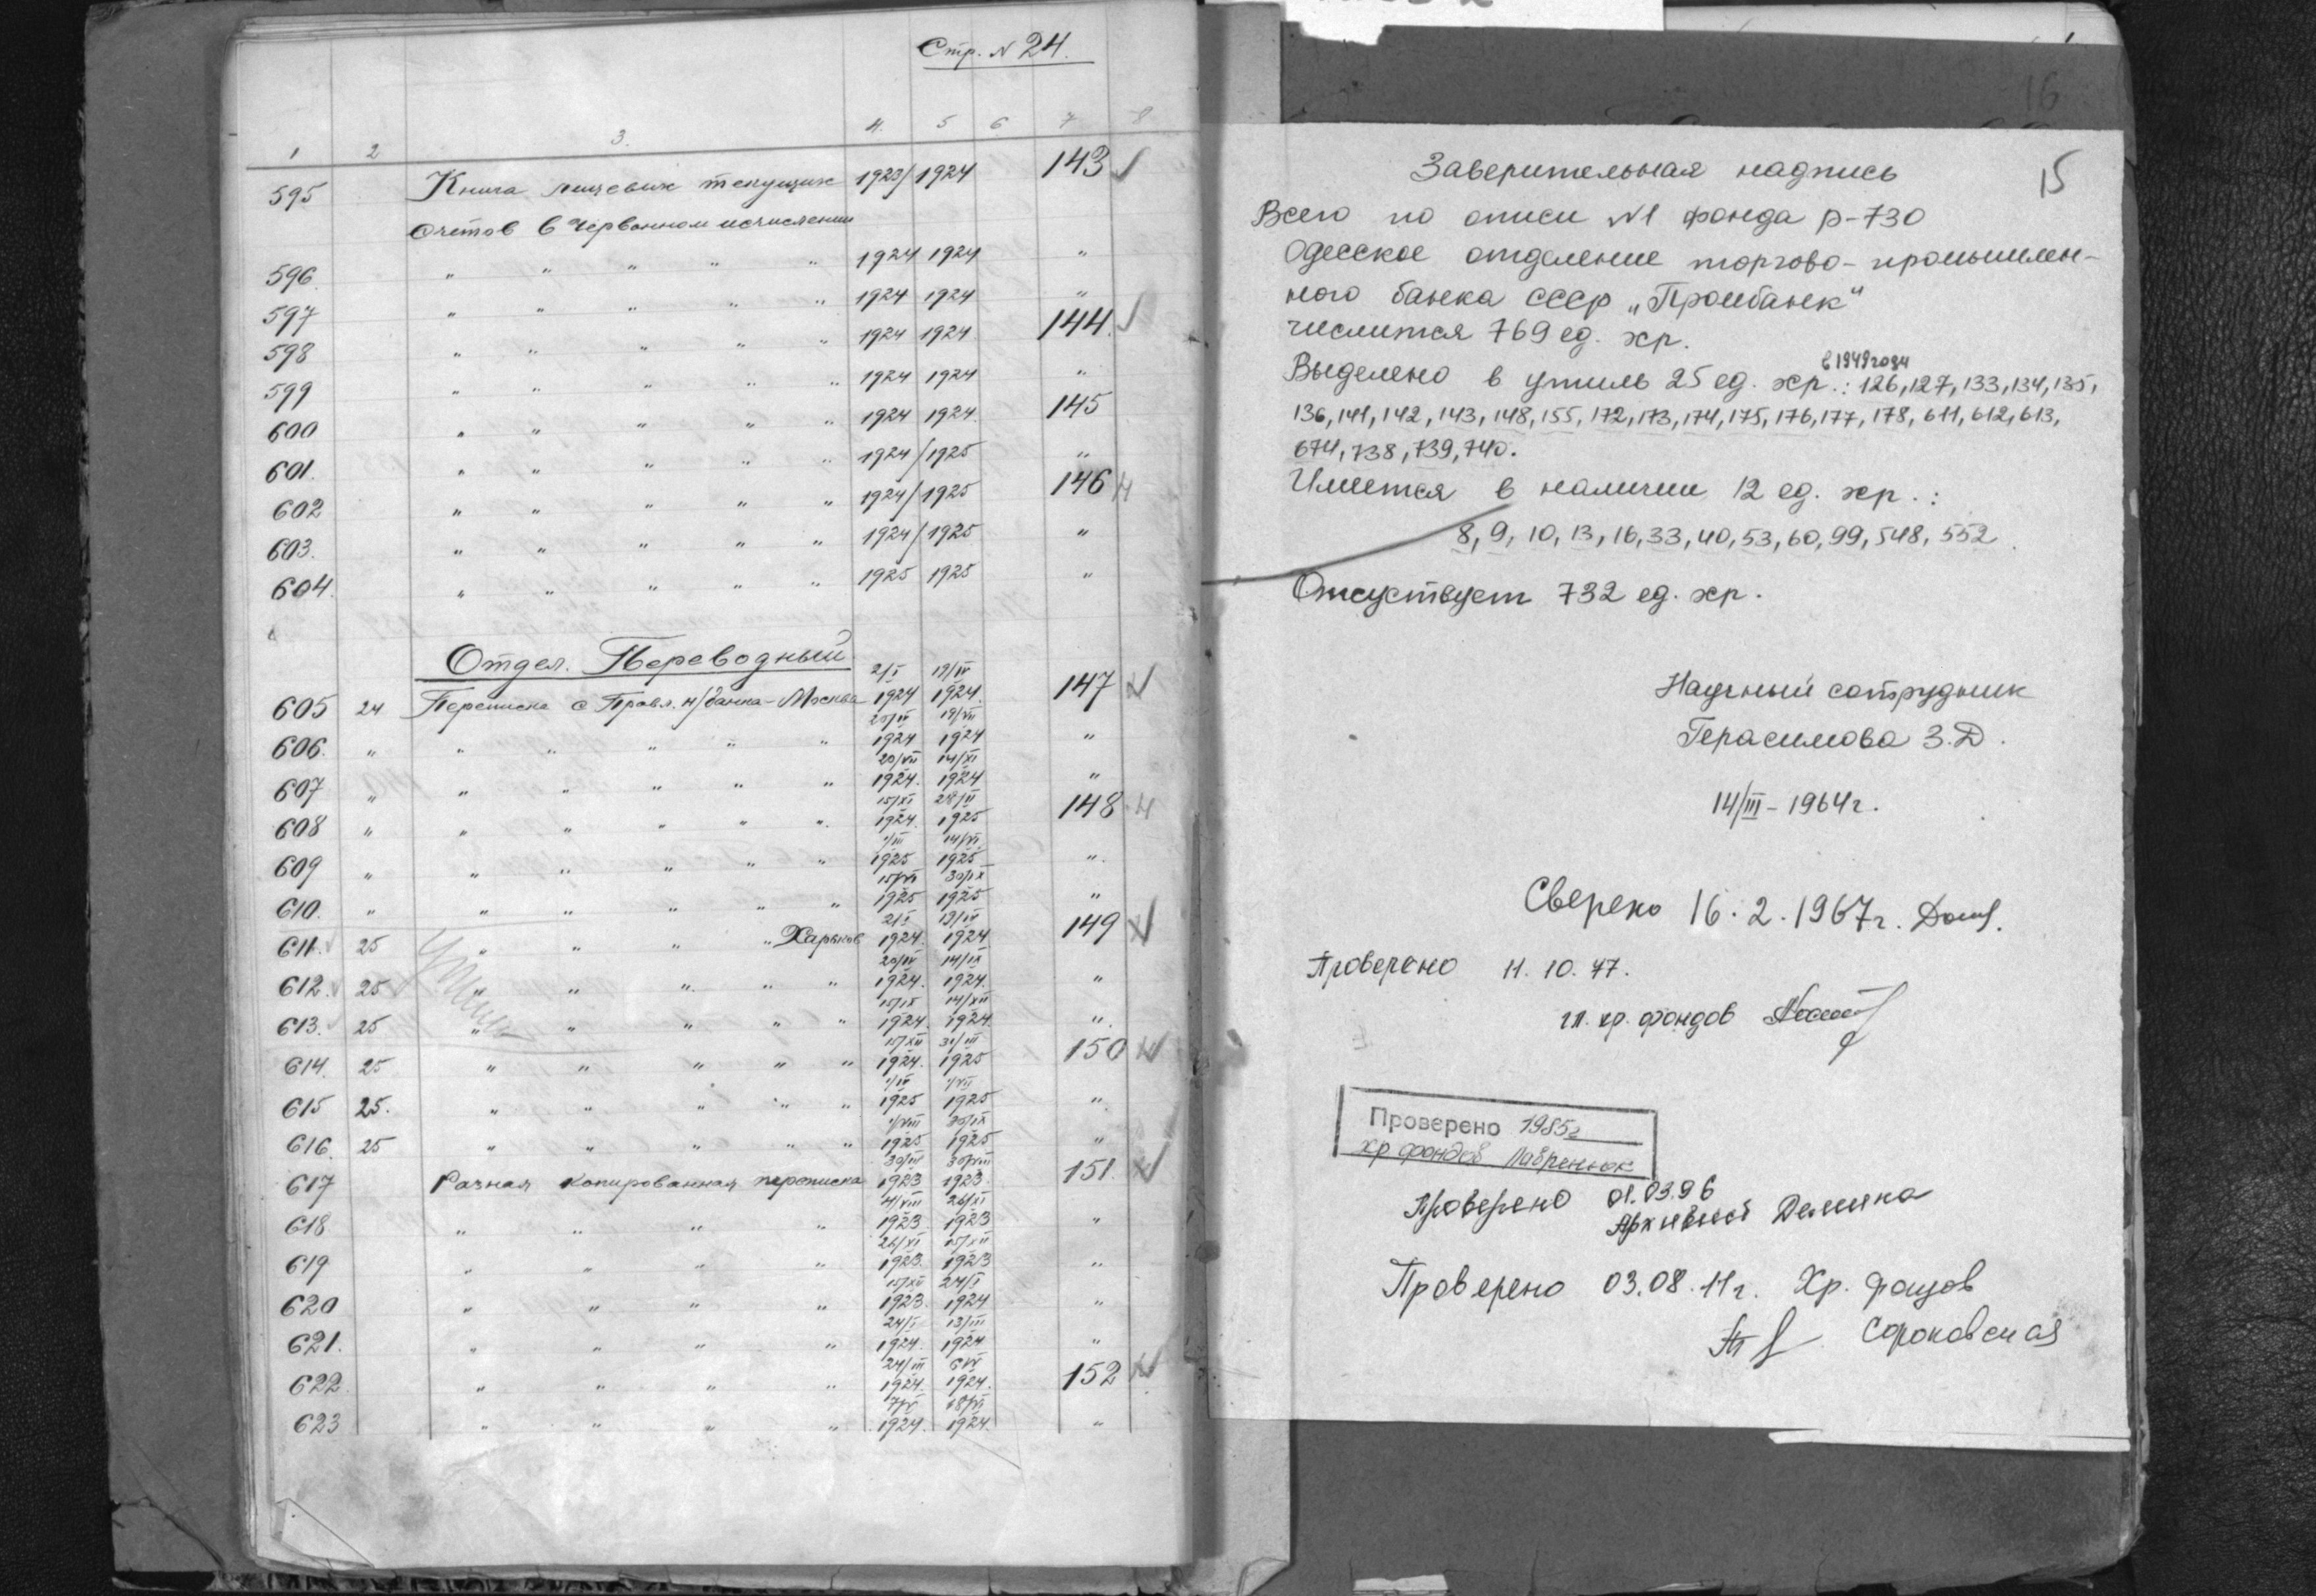 Стр. № 24.
1 2 3. 4. 5 6 7 8
595 Книга лицевых текущих 1923/1924 143
счетов в червонном исчислении
596. " " " " " 1924 1924 "
597 " " " " " 1924 1924 "
598 " " " " " 1924 1924. 144.
599 " " " " " 1924 1924 "
600 " " " " " 1924 1924. 145
601. " " " " " 1924/1925 "
602 " " " " " 1924/1925 146
603. " " " " " 1924/1925 "
604. " " " " " 1925 1925 "
Отдел. Переводный
2/I 19/IV
605 24 Переписка с Правл. н/банка - Москва 1924 1924. 147
20/IV 19/VII
606. " " " " " " 1924 1924 "
20/VII 14/XI
607 " " " " " " 1924. 1924 "
15/XI 28/II
608 " " " " " " 1924. 1925 148
1/III 14/VI
609 " " " " " " 1925 1925 ".
15/VI 30/IX
610. " " " " " " 1925 1925 "
2/I 19/IV
611. 25 " " " " Харьков 1924. 1924 149
Утиль
20/IV 14/IX
612. 25 " " " " " 1924. 1924. "
15/IX 14/XII
613. 25 " " " " " 1924. 1924. ".
15/XII 31/III
614. 25 " " " " " 1924. 1925 150
1/IV 1/VII
615 25. " " " " " 1925 1925 "
1/VIII 30/IX
616. 25 " " " " " 1925 1925 "
30/III 30/VIII
617 Разная копированная переписка 1923 1923. 151.
4/VIII 26/XI
618. " " " " 1923. 1923 "
26/XI 15/XII
619 " " " " 1923. 1923 "
15/XII 24/I
620 " " " " 1923. 1924 "
24/I 13/III
621. " " " " 1924. 1924 "
24/III 6/V
622. " " " " 1924. 1924. 152
7/V 18/VI
623 " " " " 1924. 1924. "
16
15
Заверительная надпись
Всего по описи №1 фонда р-730
Одесское отделение торгово-промышлен-
ного банка СССР „Промбанк"
числится 769 ед. хр.
в 1949 году
Выделено в утиль 25 ед. хр.: 126, 127, 133, 134, 135,
136, 141, 142, 143, 148, 155, 172, 173, 174, 175, 176, 177, 178, 611, 612, 613,
674, 738, 739, 740.
Имеется в наличии 12 ед. хр.:
8, 9, 10, 13, 16, 33, 40, 53, 60, 99, 548, 552
Отсуствует 732 ед. хр.
Научный сотрудник
Герасимова З.Д.
14/III - 1964 г.
Сверено 16.2.1967 г.
Проверено 11.10.77.
гл. хр. фондов
Проверено 1985г
хр фондов Лавренюк
Проверено 01.03.96
Архивист Демина
Проверено 03.08.11 г. Хр. фондов
Сороковская